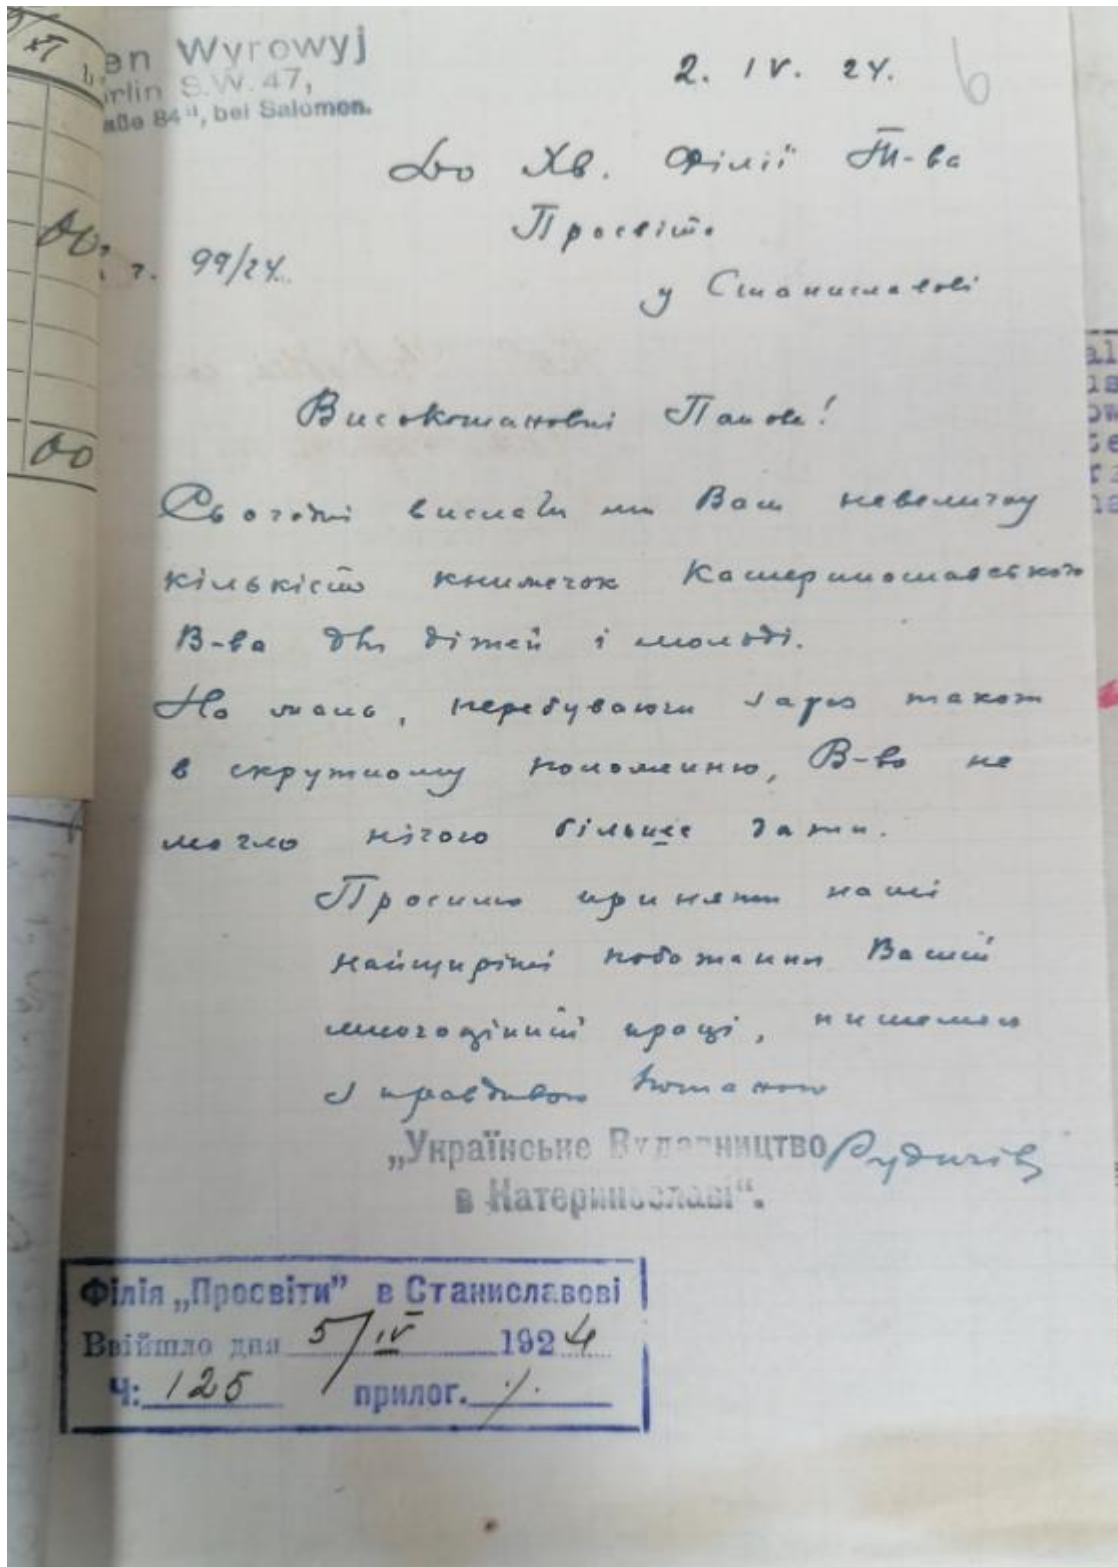 en Wyrowyj
rlin S.W. 47,
aße 84 II, bei Salomon.
2. IV. 24.
6
До Хв. Філії Т-ва
Просвіта
у Станиславові
ч. 99/24.
Високошановні Панове!
Сьогодні вислали ми Вам невеличку
кількість книжечок Катеринославського
В-ва для дітей і молоді.
На жаль, перебуваючи зараз також
в скрутному положенню, В-во не
могло нічого більше дати.
Просимо принять наші
найщиріші побажання Вашій
многоцінній праці, пишемось
з правдивою пошаною
„Українське Видавництво
в Катеринославі“.
Філія „Просвіти” в Станиславові
Ввійшло дня 5/IV 1924
Ч: 125 прилог. ./.
00
00